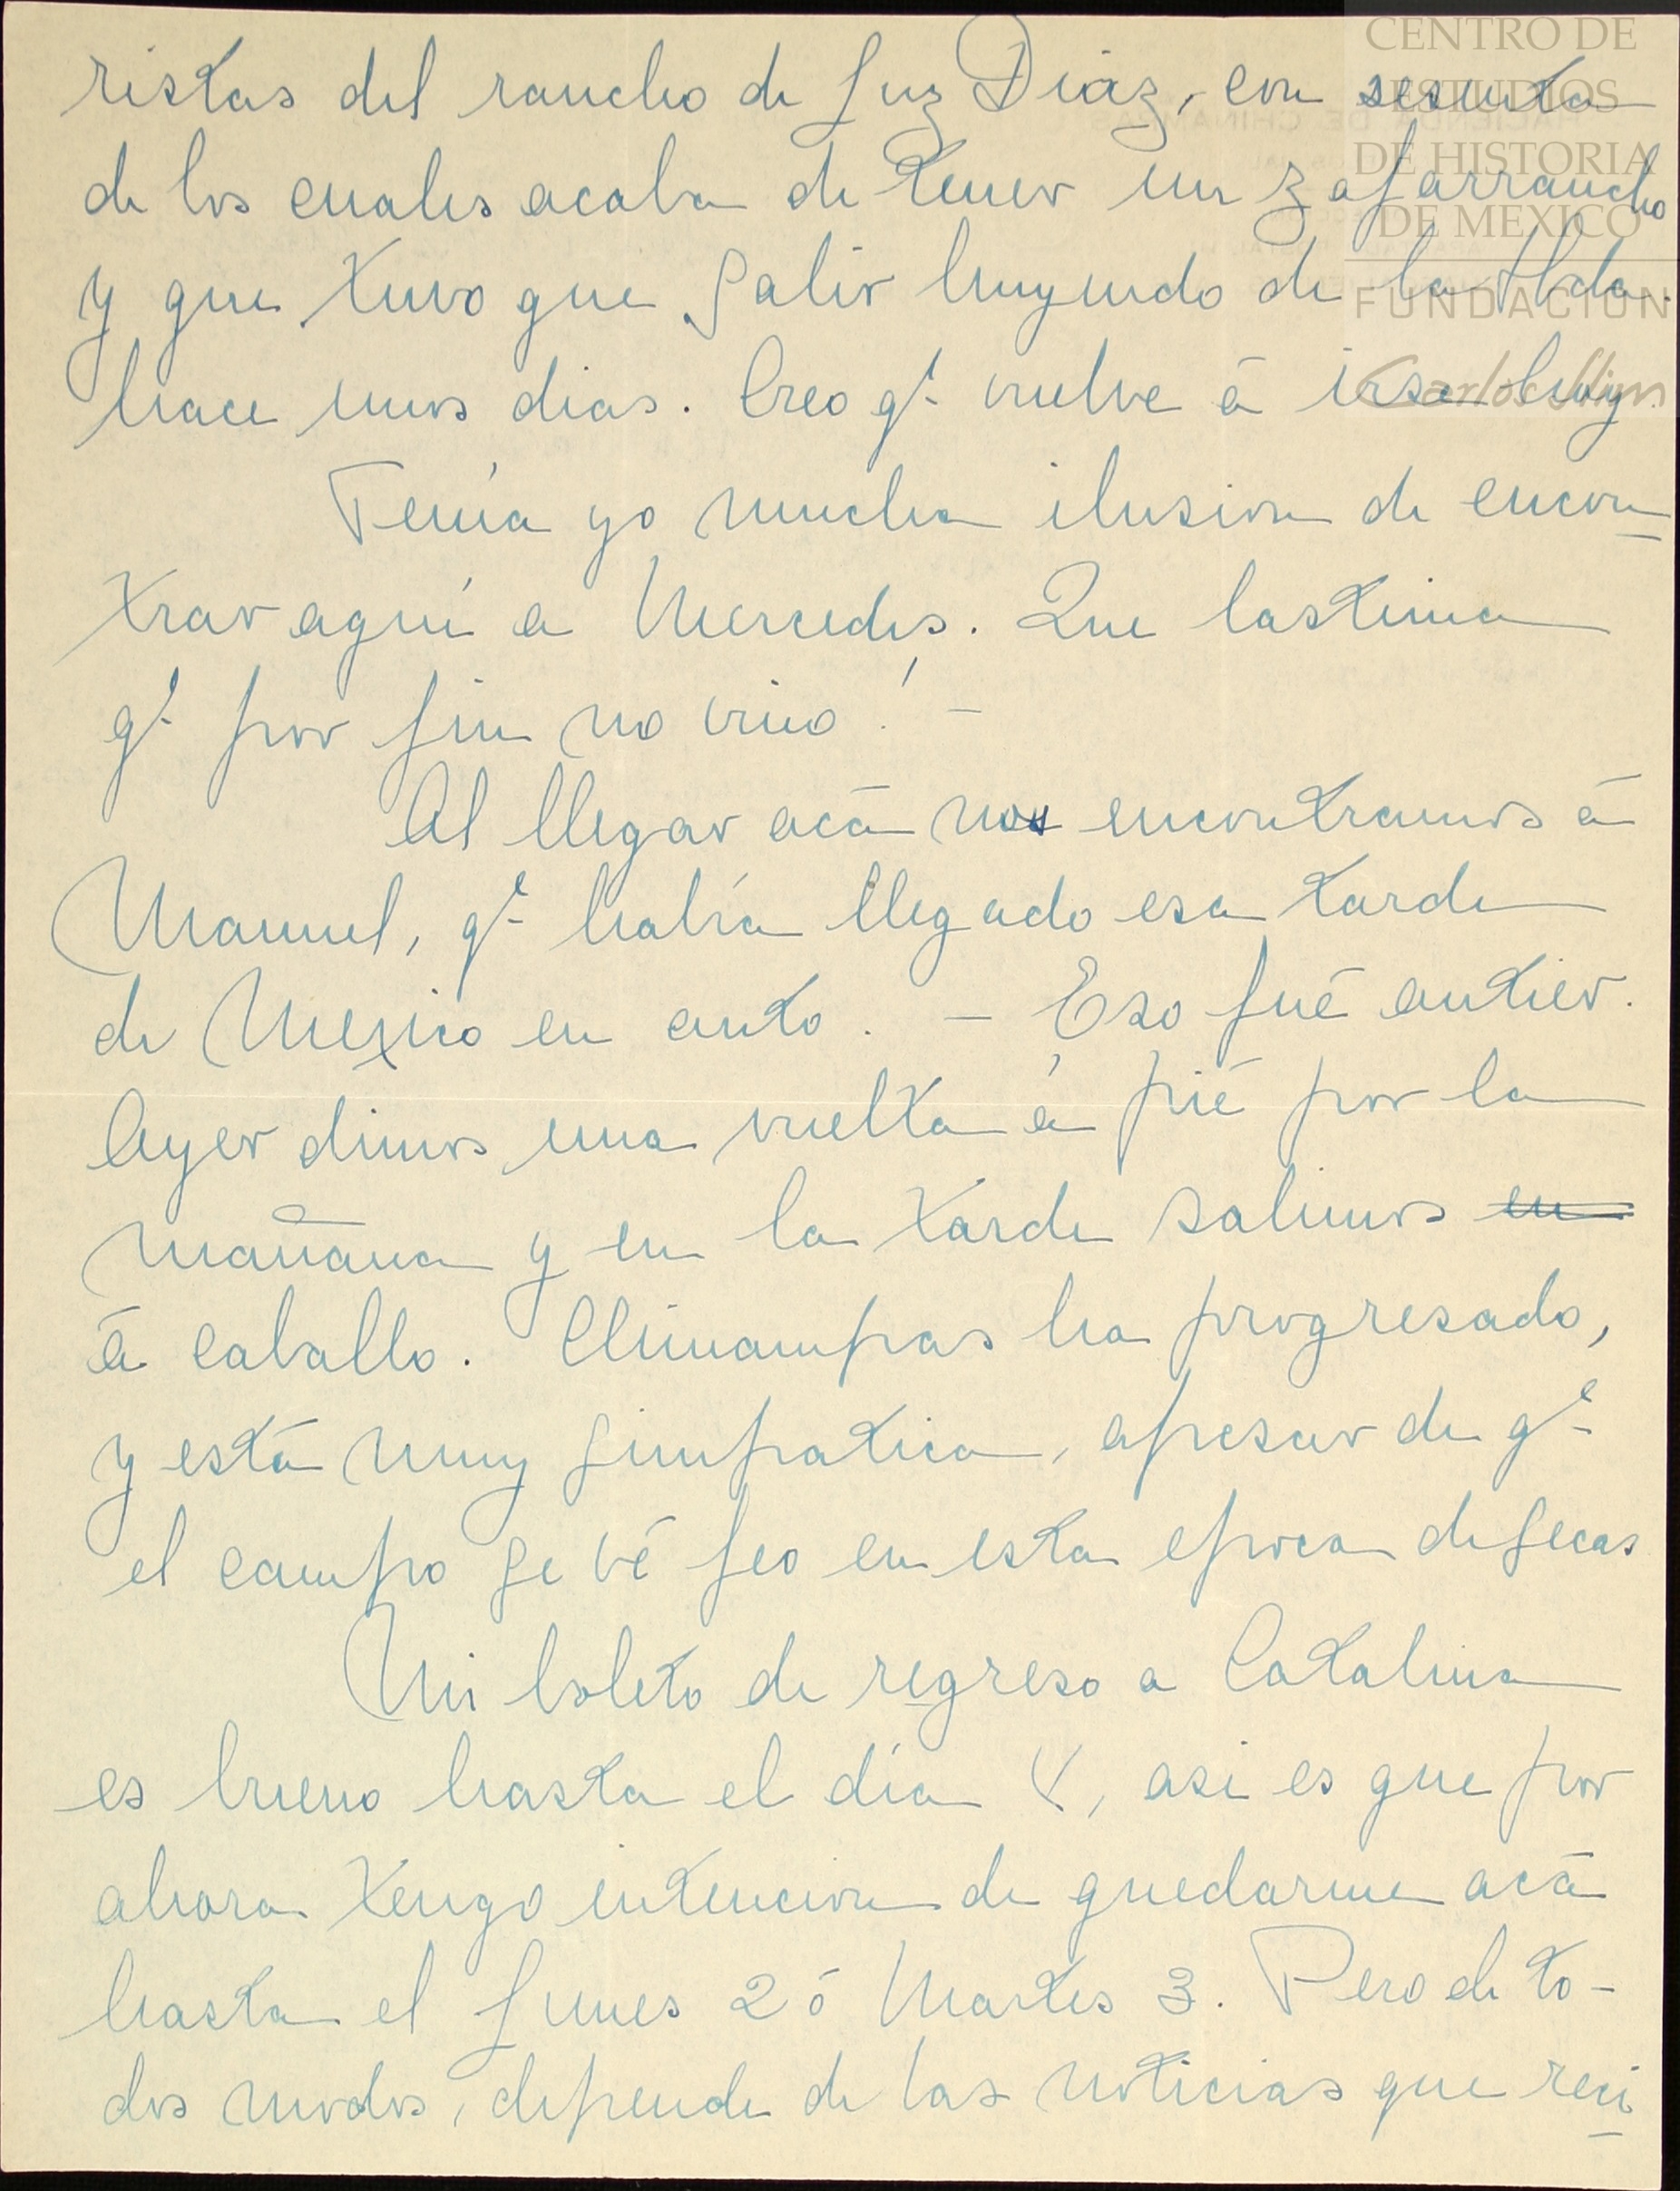 CENTRO DE
ESTUDIOS
DE HISTORIA
DE MEXICO
FUNDACION
Carlos Slim
ristas del rancho de Luz Diaz, con sesenta
de los cuales acaba de tener un zafarrancho
y que tuvo que salir huyendo de la Hda.
hace unos dias. Creo qe vuelve á irse hoy.
Tenía yo mucha ilusion de encon
trar aquí a Mercedes. Que lastima
qe por fin no vino! –
Al llegar acá nos encontramos á
Manuel, qe había llegado esa tarde
de Mexico en auto. – Eso fué antier.
Ayer dimos una vuelta á pié por la
mañana y en la tarde salimos en
á caballo. Chinampas ha progresado,
y está muy simpatica, apesar de qe
el campo se vé feo en esta epoca de secas
Mi boleto de regreso a Catalina
es bueno hasta el día 4, asi es que por
ahora tengo intencion de quedarme acá
hasta el Lunes 2 ó Martes 3. Pero de to-
dos modos, depende de las noticias que reci